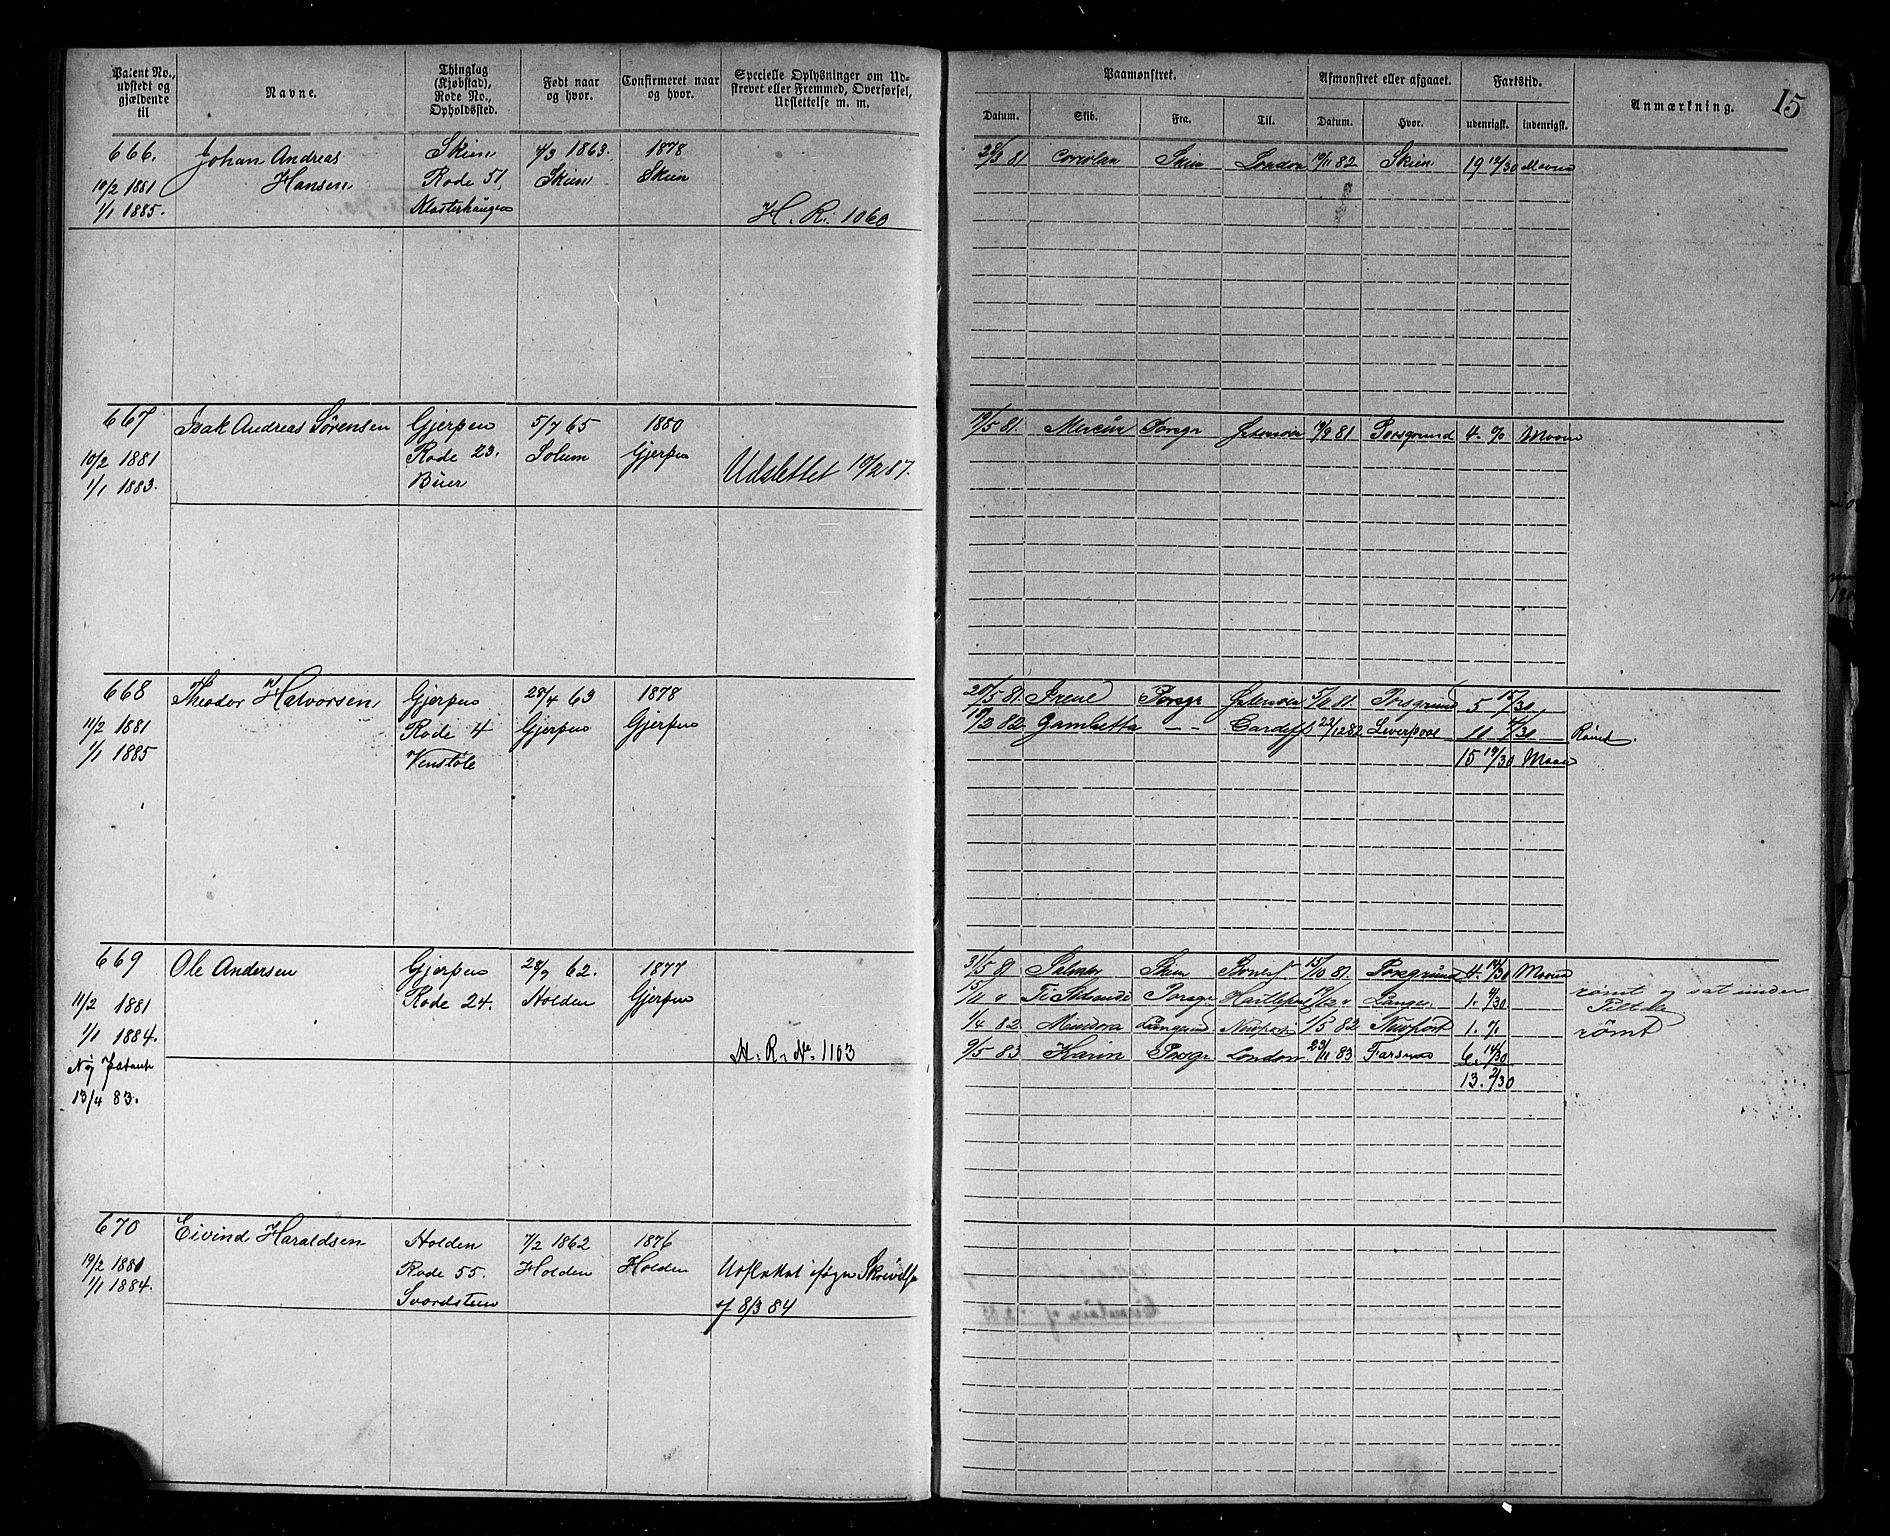 Patent No., udstedt og gjældende til
Navne.
Thinglag (Kjøbstad), Rode No., Opholdssted.
Født naar og hvor.
Confirmeret naar og hvor.
Specielle Oplysninger om Udskrevet eller Fremmed, Overførsel, Udslettelse m. m.
Paamønstret.
Afmønstret eller afgaaet.
Fartstid.
Anmærkning.
15
Datum. Skib. Fra. Til. Datum. Hvor. udenrigsk. indenrigsk.
666. Johan Andreas Skien 4/3 1863 1878
10/2 1881 Hansen Rode 51, Skien Skien
1/1 1885. Klosterhaugen H. R: 1060
81 Skien London 82 Skien 19 12/30 Maaned
667 Isak Andreas Sørensen Gjerpen 5/7 65 1880
10/2 1881 Rode 23. Solum Gjerpen
1/1 1883. Buer Udslettet 19/2 87.
19/5 81. Mercur Porsgr 81 Porsgrund 4. Maaned
668 Theodor Halvorsen Gjerpen 28/4 63 1878
11/2 1881 Rode 4 Gjerpen Gjerpen
1/1 1885 Venstøle
20/5 81. Irene Porsgr 81. Porsgrund 5 15/30
82 Gambetta – – Cardiff 22/12 82 Liverpool 10 4/30 Rømt.
15 19/30 Maaned
669 Ole Andersen Gjerpen 28/9 62. 1877
11/2 1881 Rode 24. Holden Gjerpen
1/1 1884. H. R. No. 1103
Ny Patent
13/4 83.
31/5 81 Skien 15/10 81. Porsgrund 4. 14/30 Maaned
15/11 Porsgr Hartlepool 1. 4/30 rømt og sat under Tiltale
1/4 82 Mindora Langesund Newport 1/5 82 Newport 1. rømt
9/5 83 Karin Porsgr London 23/11 83 Farsund 6. 14/30
13. 2/30
670 Eivind Haraldsen Holden 7/2 1862 1876
19/2 1881 Rode 55. Holden Holden
1/1 1884. Svordsteen
Udslettet ifølge Skrivelse
af 8/3 84